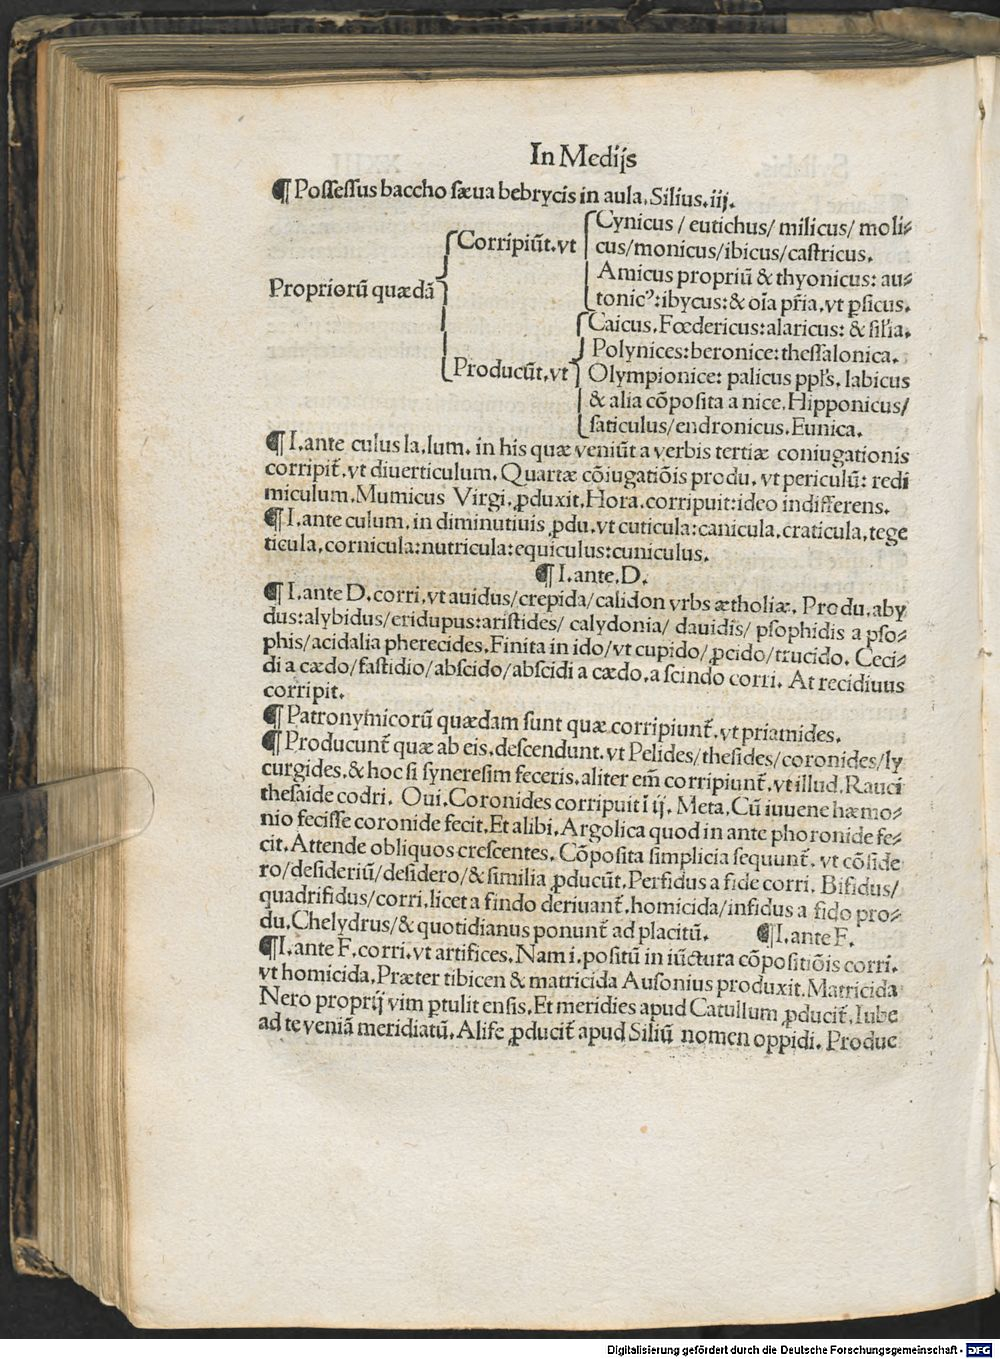 In Medijs
¶ Possessus baccho sæua bebrycis in aula. Silius. iij.
Propriorũ quædã
Corripiũt. vt
Cynicus / eutichus / milicus / moli⸗
cus / monicus / ibicus / castricus.
Amicus propriũ & thyonicus: au⸗
tonicꝰ: ibycus: & oĩa pr̃ia. vt ꝑsicus.
Producũt. vt
Caicus. Fœdericus: alaricus: & sil̃ia.
Polynices: beronice: thessalonica.
Olympionice: palicus ppl's. labicus
& alia cõposita a nice. Hipponicus /
saticulus / endronicus. Eunica.
¶ I. ante culus la. lum. in his quæ veniũt a verbis tertiæ coniugationis
corripit̃. vt diuerticulum. Quartæ cõiugatiõis produ. vt periculũ: redi
miculum. Mumicus Virgi. ꝓduxit. Hora. corripuit: ideo indifferens.
¶ I. ante culum. in diminutiuis ꝓdu. vt cuticula: canicula. craticula. tege
ticula. cornicula: nutricula: equiculus: cuniculus.
¶ I. ante. D.
¶ I. ante D. corri. vt auidus / crepida / calidon vrbs ætholiæ. Produ. aby
dus: alybidus / eridupus: aristides / calydonia / dauidis / psophidis a pso⸗
phis / acidalia pherecides. Finita in ido / vt cupido / ꝓcido / trucido. Ceci⸗
di a cædo / fastidio / abscido / abscidi a cædo. a scindo corri. At recidiuus
corripit.
¶ Patronymicorũ quædam sunt quæ corripiunt̃. vt priamides.
¶ Producunt̃ quæ ab eis. descendunt. vt Pelides / thesides / coronides / ly
curgides. & hoc si syneresim feceris. aliter em̃ corripiunt̃. vt illud. Rauci
thesaide codri. Oui. Coronides corripuit ĩ ij. Meta. Cũ iuuene hæmo⸗
nio fecisse coronide fecit. Et alibi. Argolica quod in ante phoronide fe⸗
cit. Attende obliquos crescentes. Cõposita simplicia sequunt̃. vt cõside
ro / desideriũ / desidero / & similia ꝓducũt. Perfidus a fide corri. Bifidus /
quadrifidus / corri. licet a findo deriuant̃. homicida / infidus a fido pro⸗
du. Chelydrus / & quotidianus ponunt̃ ad placitũ. ¶ I. ante F.
¶ I. ante F. corri. vt artifices. Nam i. positũ in iũctura cõpositiõis corri.
vt homicida. Præter tibicen & matricida Ausonius produxit. Matricida
Nero proprij vim ꝑtulit ensis. Et meridies apud Catullum ꝓducit̃. Iube
ad te veniã meridiatũ. Alife ꝓducit̃ apud Siliũ nomen oppidi. Produc
Digitalisierung gefördert durch die Deutsche Forschungsgemeinschaft - DFG